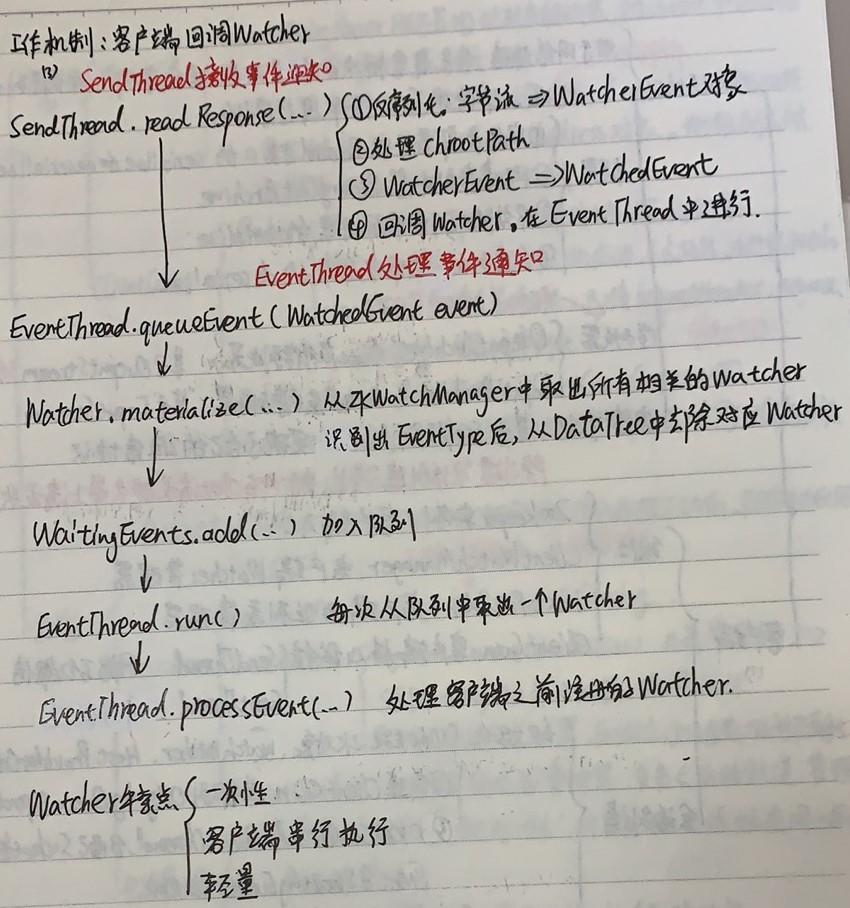 工作机制：客户端回调Watcher
(3)
SendThread接收事件通知
SendThread.readResponse(...)
①反序列化：字节流 ⇒WatcherEvent对象
②处理chrootPath
③ WatcherEvent ⇒WatchedEvent
④ 回调Watcher，在EventThread中进行.
EventThread处理事件通知
EventThread.queueEvent(WatchedEvent event)
Watcher.materialize(...) 从ZKWatchManager中取出所有相关的Watcher
识别出EventType后，从DataTree中去除对应Watcher
WaitingEvents.add(...) 加入队列
EventThread.run() 每次从队列中取出一个Watcher
EventThread.processEvent(...) 处理客户端之前注册的Watcher.
Watcher特点
一次性
客户端串行执行
轻量